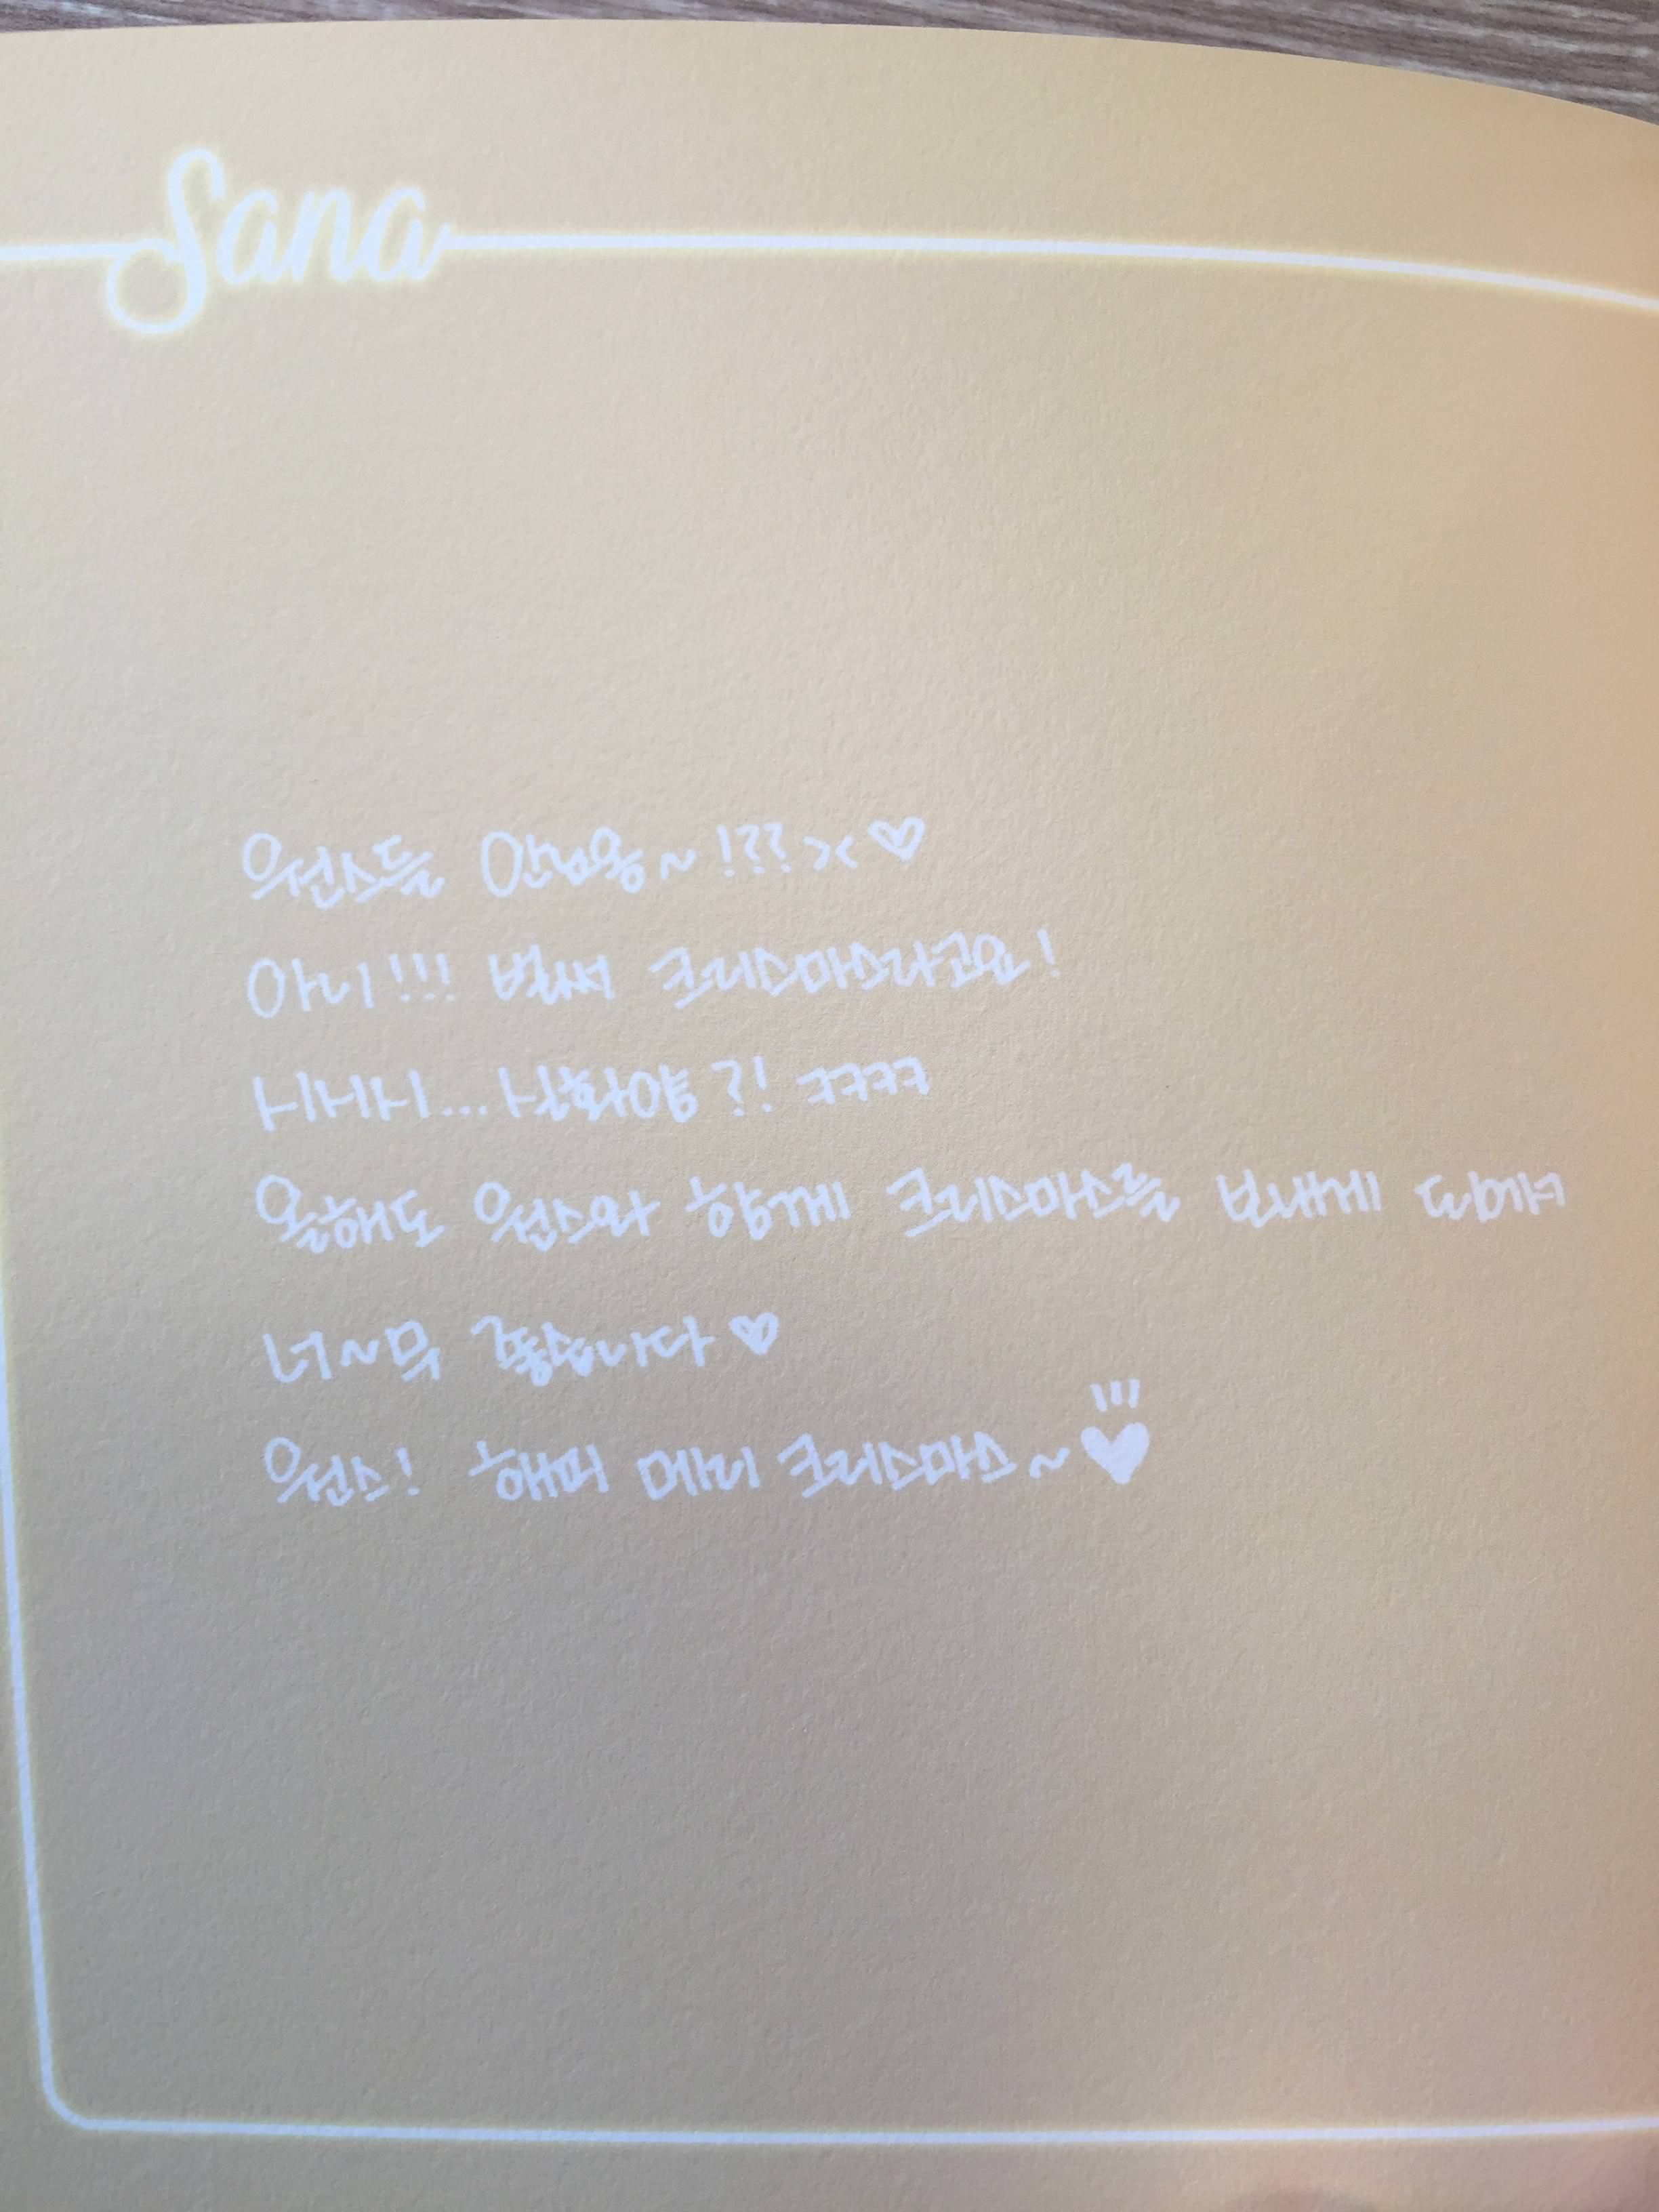 Sana
원스들 안녕용~!??><♡
아니!!! 벌써 크리스마스라고요!
시나시... 실화야?! ㅋㅋㅋㅋ
올해도 원스와 함께 크리스마스를 보내게 되어서
너~무 좋습니다♡
원스! 해피 메리 크리스마스~♥